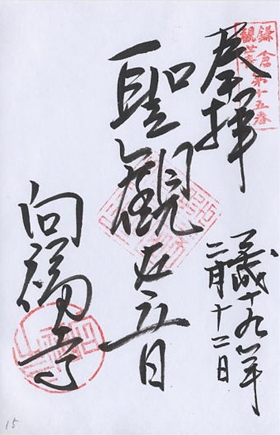 鎌倉
観世音
第十五番
奉拝
平成十九年
二月十二日
聖観世音
向福寺
15